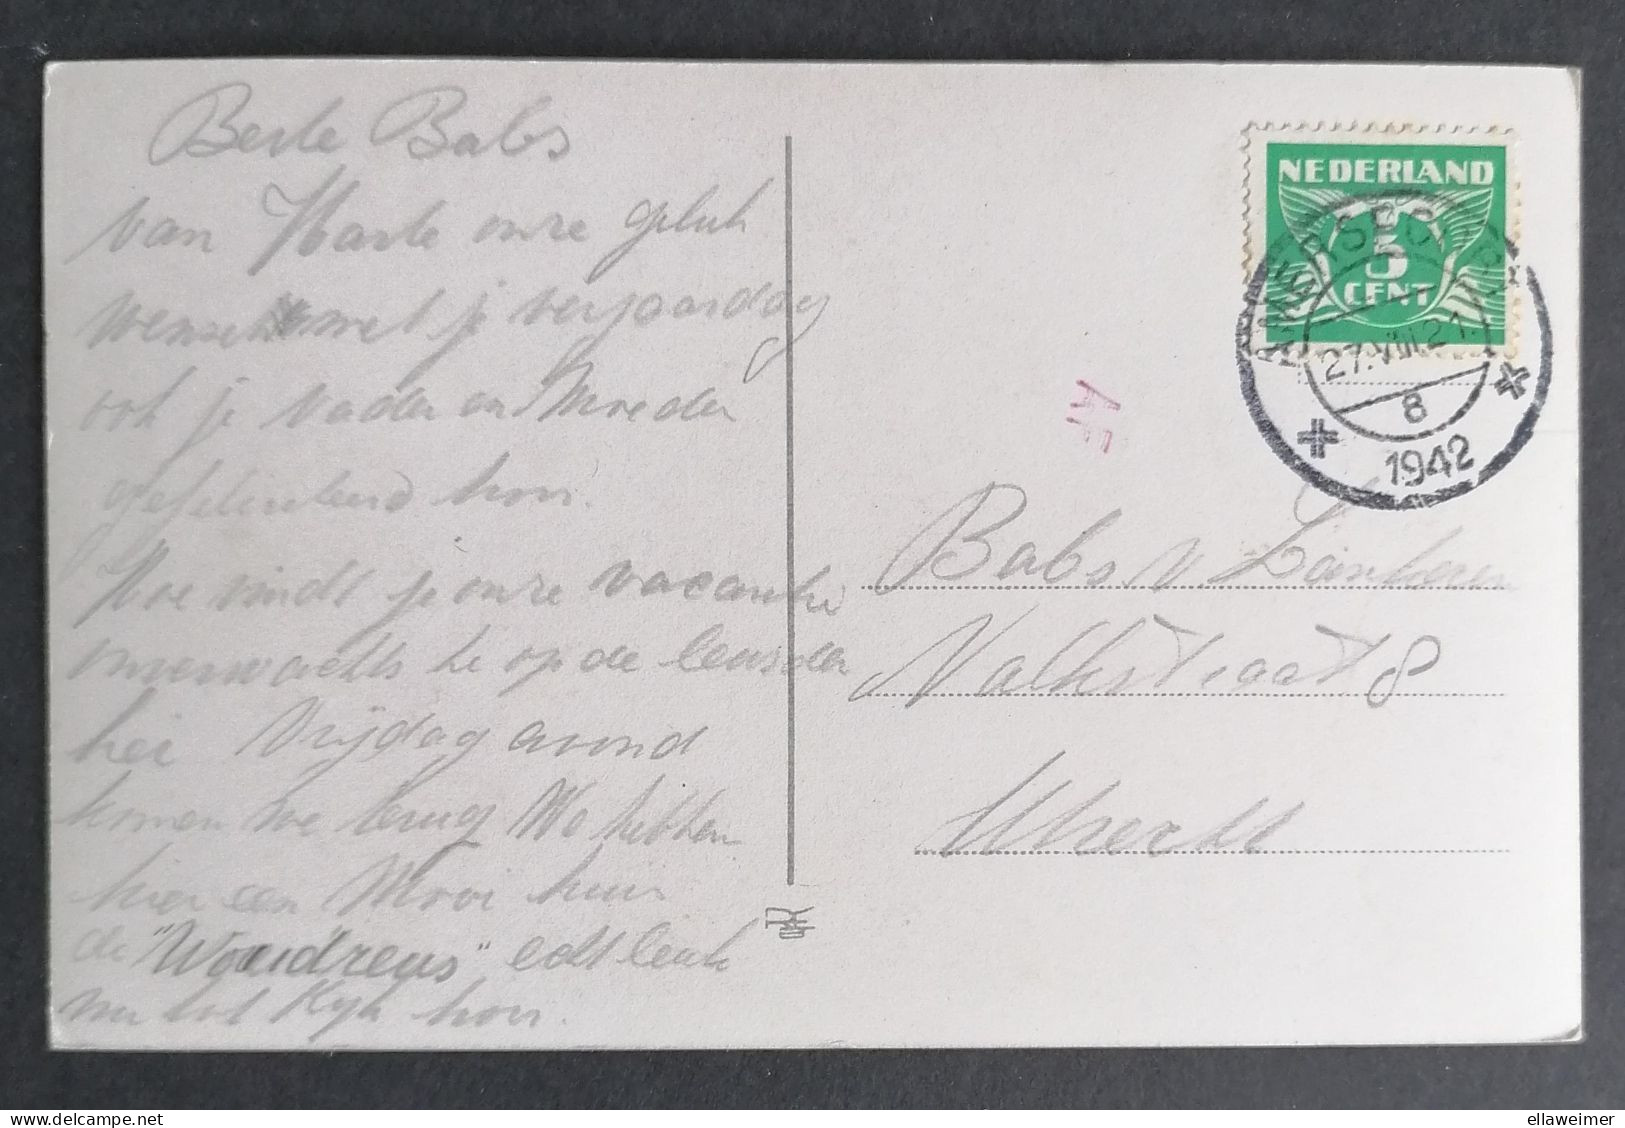 Beste Babs
van Harte onze geluk
wensch met je verjaardag
ook je Vader en Moeder
gefeliciteerd hoor.
Hoe vindt je onze vacantie
onverwachts he op de Leusder
hei Vrijdag avond
komen we terug We hebben
hier een Mooi huis
de "Woudreus" echt leuk
nu tot Kijk hoor.
NEDERLAND
5
CENT
AMERSFOORT
27.VIII.21
8
1942
AF
Babs v.
Valkstraat 8
Utrecht
ellaweimer